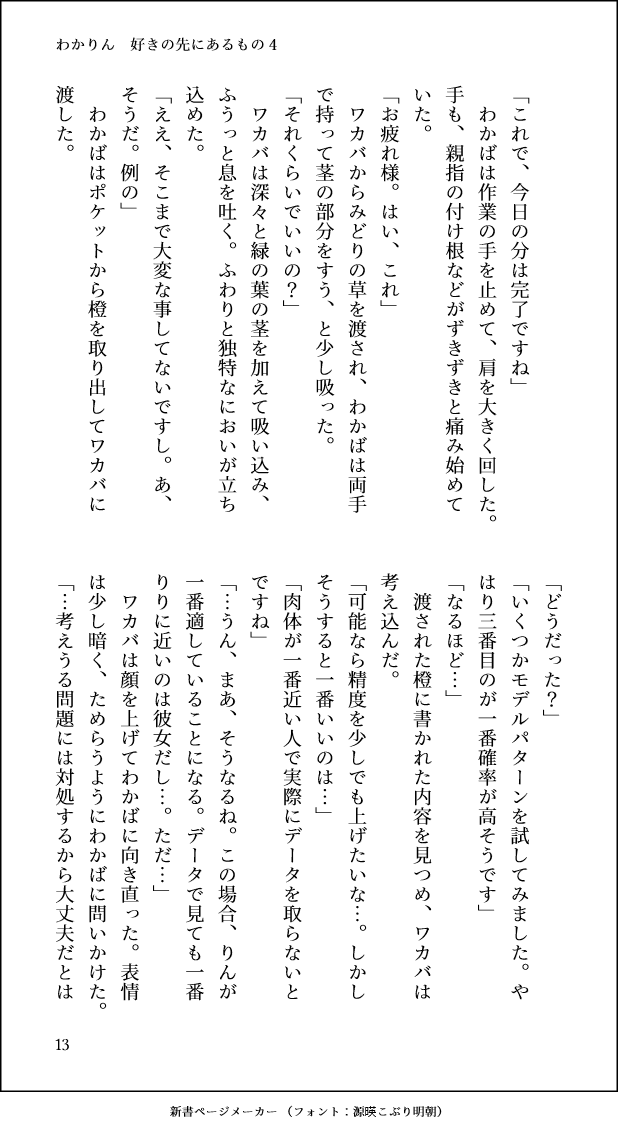 わかりん　好きの先にあるもの４
「これで、今日の分は完了ですね」
　わかばは作業の手を止めて、肩を大きく回した。
手も、親指の付け根などがずきずきと痛み始めて
いた。
「お疲れ様。はい、これ」
　ワカバからみどりの草を渡され、わかばは両手
で持って茎の部分をすう、と少し吸った。
「それくらいでいいの？」
　ワカバは深々と緑の葉の茎を加えて吸い込み、
ふうっと息を吐く。ふわりと独特なにおいが立ち
込めた。
「ええ、そこまで大変な事してないですし。あ、
そうだ。例の」
　わかばはポケットから橙を取り出してワカバに
渡した。
「どうだった？」
「いくつかモデルパターンを試してみました。や
はり三番目のが一番確率が高そうです」
「なるほど…」
　渡された橙に書かれた内容を見つめ、ワカバは
考え込んだ。
「可能なら精度を少しでも上げたいな…。しかし
そうすると一番いいのは…」
「肉体が一番近い人で実際にデータを取らないと
ですね」
「…うん、まあ、そうなるね。この場合、りんが
一番適していることになる。データで見ても一番
りりに近いのは彼女だし…。ただ…」
　ワカバは顔を上げてわかばに向き直った。表情
は少し暗く、ためらうようにわかばに問いかけた。
「…考えうる問題には対処するから大丈夫だとは
13
新書ページメーカー（フォント：源暎こぶり明朝）